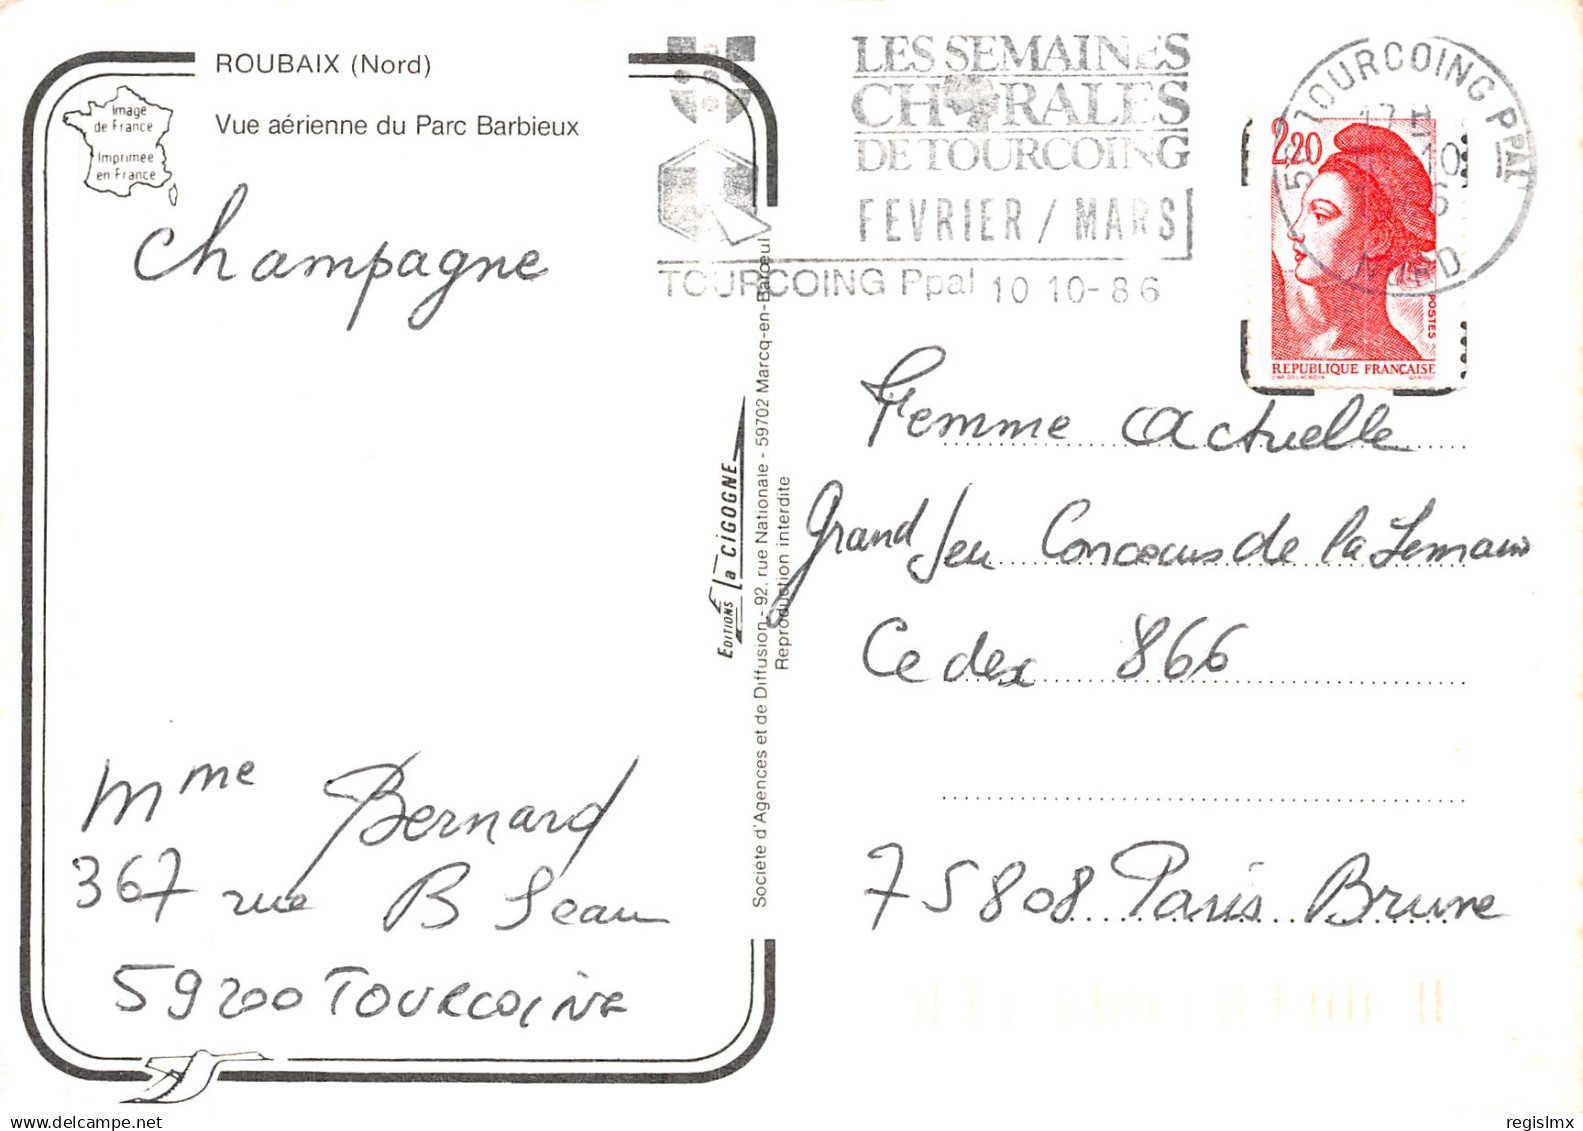 ROUBAIX (Nord)
Vue aérienne du Parc Barbieux
Image
de France
Imprimée
en France
Champagne
Mme Bernard
367 rue B Jean
59200 TOURCOING
LES SEMAINES
CHORALES
DE TOURCOING
FEVRIER / MARS
TOURCOING Ppal 10 10-86
59 TOURCOING PPAL
NORD
2,20
POSTES
REPUBLIQUE FRANÇAISE
EDITIONS La CIGOGNE
Société d'Agences et de Diffusion - 92, rue Nationale - 59702 Marcq-en-Barœul
Reproduction interdite
Femme Actuelle
Grand Jeu Concours de la Semaine
Cedex 866
75808 Paris Brune
regislmx